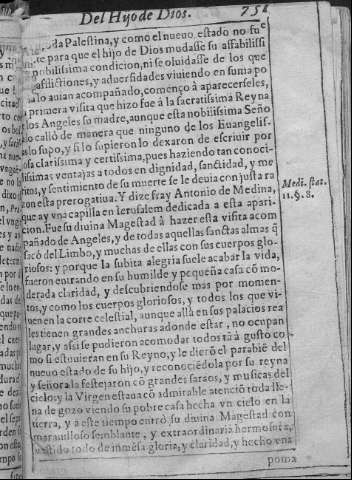 Del Hijo de Dios. 751
da Palestina, y como el nueuo estado no fue
te para que el hijo de Dios mudasse su affabilissi
nobilissima condicion, ni se oluidasse de los que
aflictiones, y aduersidades viuiendo en suma po
lo auian acompañado, començò à aparecerseles,
primera visita que hizo fue à la sacratissima Reyna
los Angeles su madre, aunque esta nobilissima Seño
lo callò de manera que ninguno de los Euangelis-
lo supo, y si lo supieron lo dexaron de escriuir por
sa clarissima y certissima, pues haziendo tan conoci-
issimas ventajas a todos en dignidad, sanctidad, y me
ritos, y sentimiento de su muerte se le deuia con justa ra
on esta prerogatiua. Y dize fray Antonio de Medina,
que ay vna capilla en Ierusalem dedicada a esta apari-
cion. Fue su diuina Magestad à hazer esta visita acom
pañado de Angeles, y de todas aquellas sanctas almas q̃
sacò del Limbo, y muchas de ellas con sus cuerpos glo-
riosos: y porque la subita alegria suele acabar la vida,
fueron entrando en su humilde y pequeña casa cõ mo-
derada claridad, y descubriendose mas por momen-
tos, y como los cuerpos gloriosos, y todos los que vi-
uen en la corte celestial, aunque allà en sus palacios rea
les tienen grandes anchuras adonde estar, no ocupan
lugar, y assi se pudieron acomodar todos tã à gusto co-
mo si estuuieran en su Reyno, y le dierõ el parabié del
nueuo estado de su hijo, y reconociédola por su reyna
y señora la festejaron cõ grandes saraos, y musicas del
cielo, y la Virgen estaua cõ admirable atenciõ toda lle-
na de gozo viendo su pobre casa hecha vn cielo en la
tierra, y a este tiempo entrò su diuina Magestad con
marauilloso semblante, y extraordinaria hermosura,
vestido todo de inmésa gloria, y claridad, y hecho vna
poma
Medi. stat.
11. §. 8.